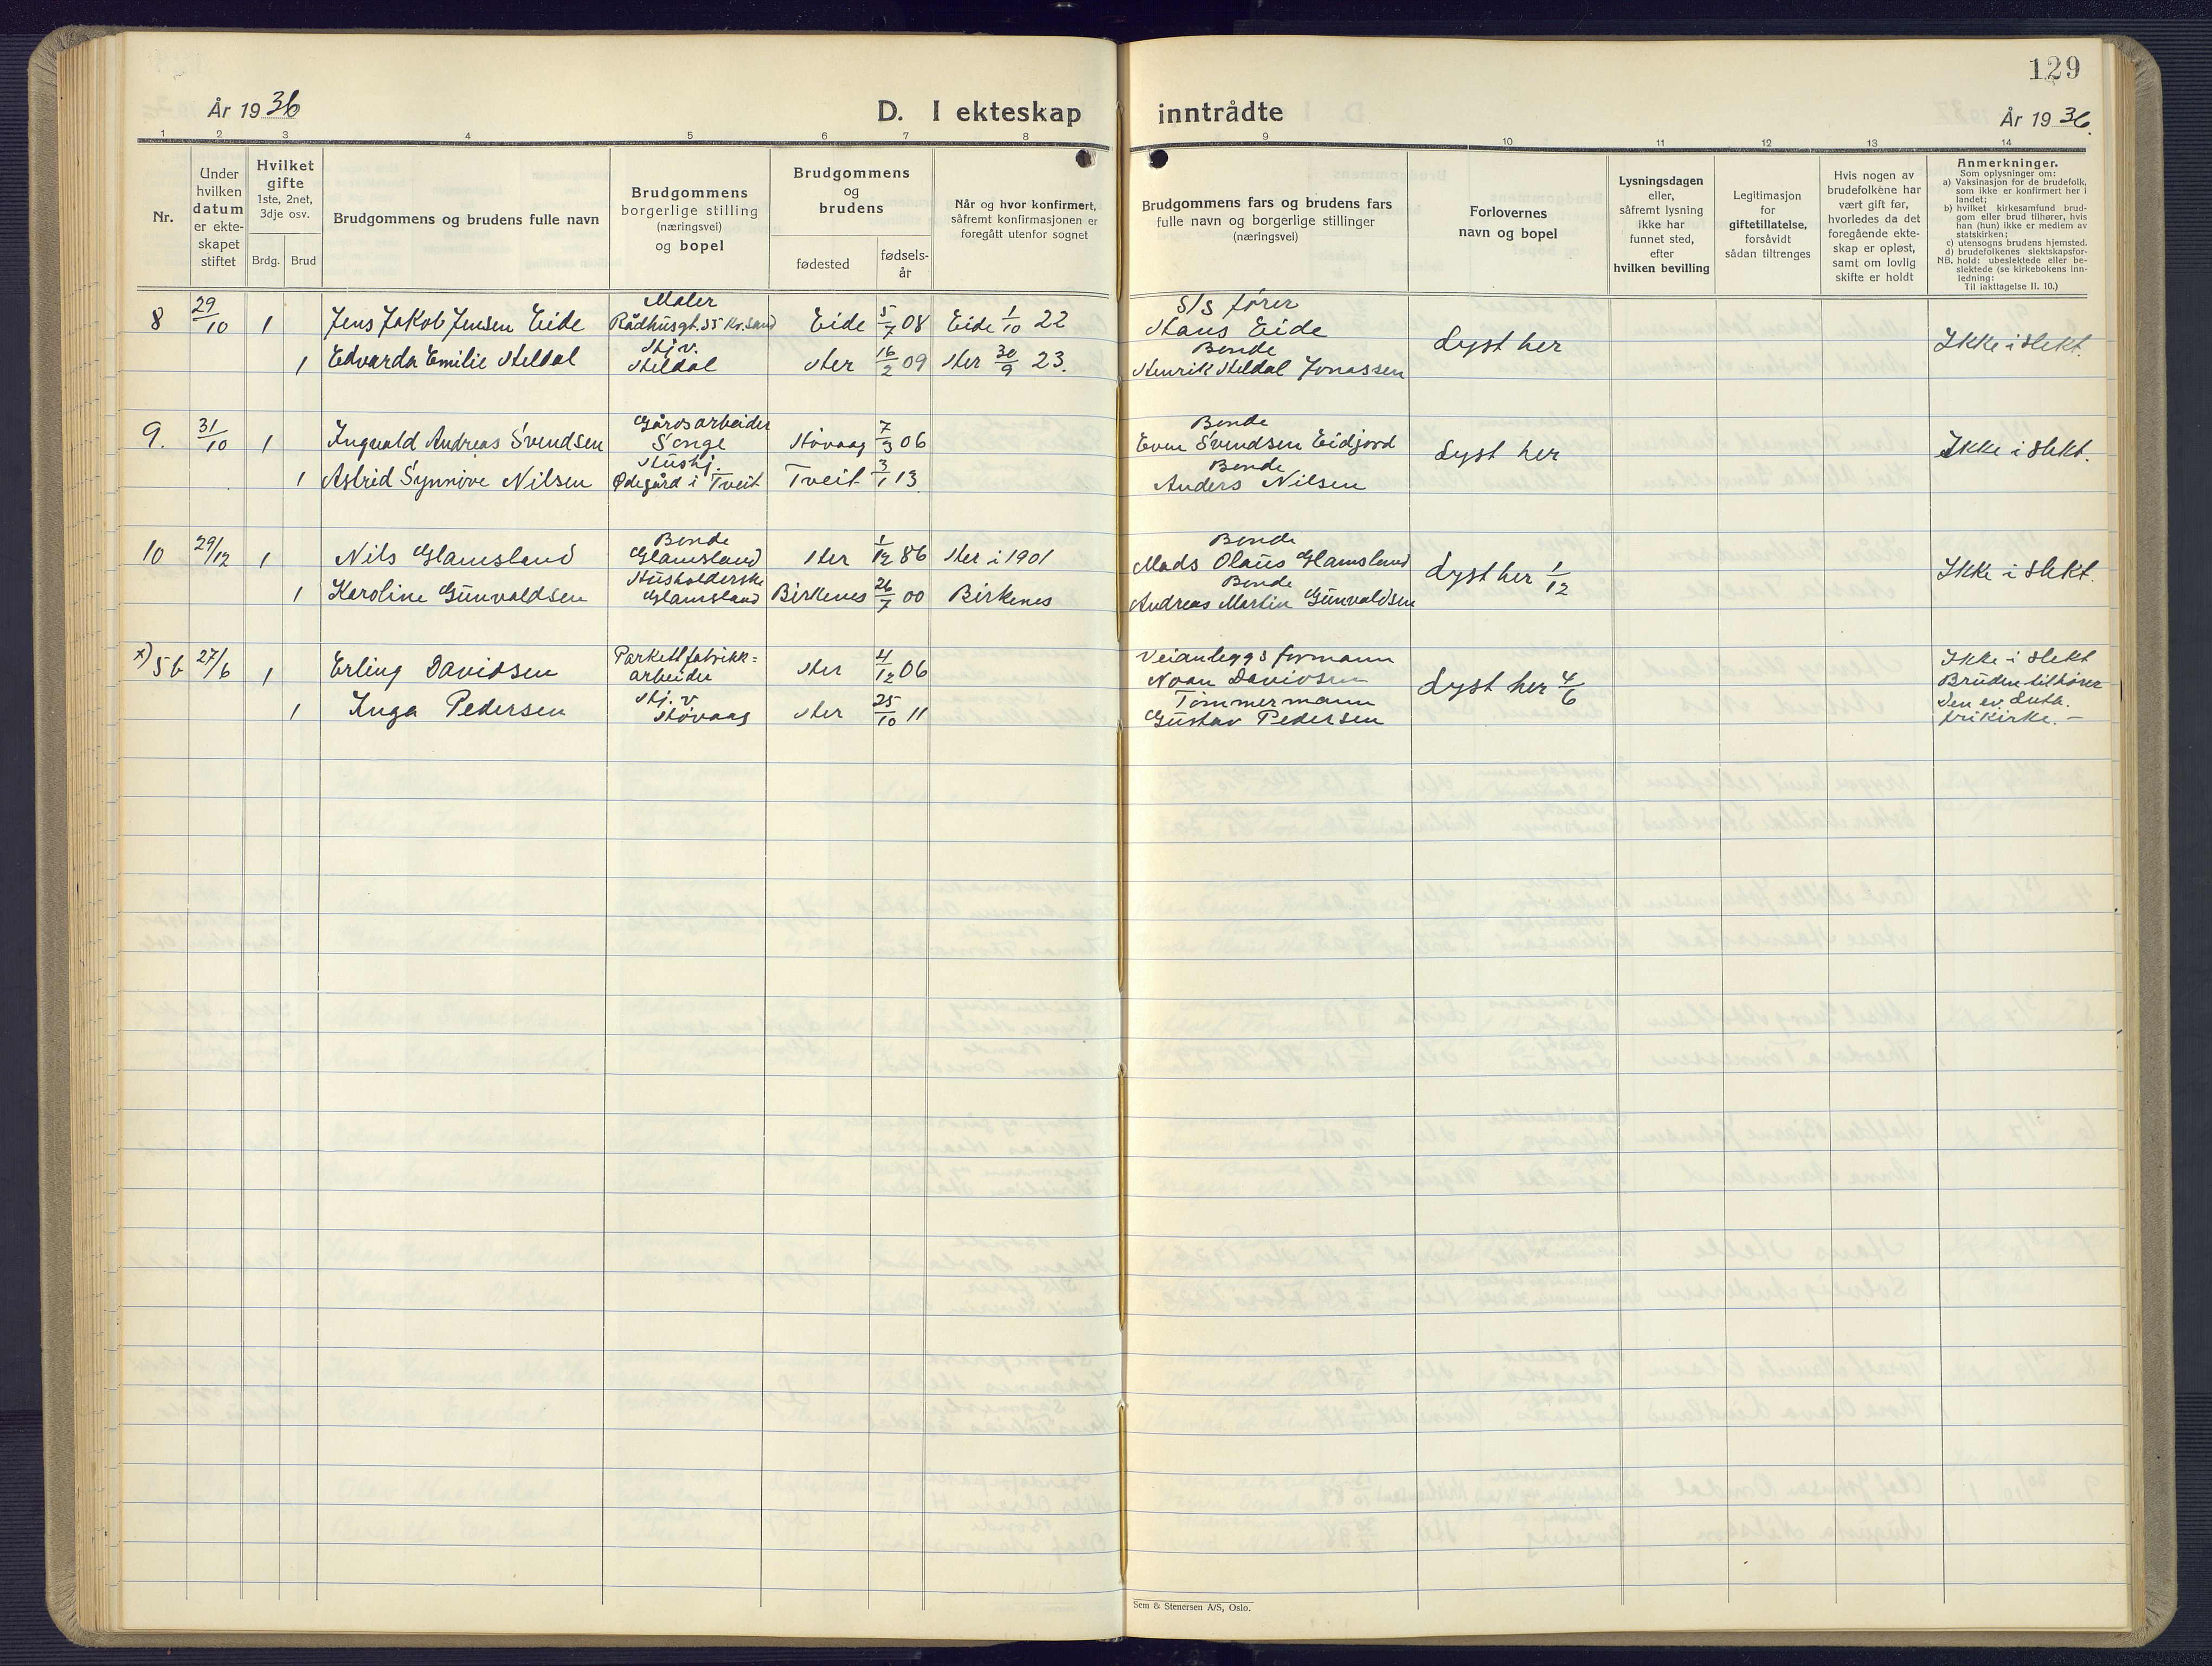 129
År 1936
D. I ekteskap inntrådte
År 1936.
1 2 3 4 5 6 7 8 9 10 11 12 13 14
Nr.
Under hvilken datum er ekteskapet stiftet
Hvilket gifte
1ste, 2net, 3dje osv.
Brdg. Brud
Brudgommens og brudens fulle navn
Brudgommens borgerlige stilling (næringsvei) og bopel
Brudgommens og brudens
fødested
fødselsår
Når og hvor konfirmert, såfremt konfirmasjonen er foregått utenfor sognet
Brudgommens fars og brudens fars fulle navn og borgerlige stillinger (næringsvei)
Forlovernes navn og bopel
Lysningsdagen eller, såfremt lysning ikke har funnet sted, efter hvilken bevilling
Legitimasjon for giftetillatelse, forsåvidt sådan tiltrenges
Hvis nogen av brudefolkene har vært gift før, hvorledes da det foregående ekteskap er opløst, samt om lovlig skifte er holdt
Anmerkninger.
Som oplysninger om:
a) Vaksinasjon for de brudefolk, som ikke er konfirmert her i landet;
b) hvilket kirkesamfund brudgom eller brud tilhører, hvis han (hun) ikke er medlem av statskirken;
c) utensogns brudens hjemsted.
d) brudefolkenes slektskapsforhold: ubeslektede eller beslektede (se kirkebokens innledning:
NB. Til iakttagelse II. 10.)
8 29/10 1 Jens Jakob Jensen Eide Maler Rådhusgt. 55 Kr.sand Eide 5/7 08 Eide 1/10 22 S/S fører Hans Eide Lyst her Ikke i slekt.
1 Edvarda Emilie Heldal Hj. v. Heldal Her 16/2 09 Her 30/9 23. Bonde Henrik Heldal Jonassen
9. 31/10 1 Ingvald Andreas Svendsen Gårdsarbeider Songe Høvaag 7/3 06 Bonde Even Svendsen Eidjord Lyst her Ikke i slekt.
1 Astrid Synnøve Nilsen Hushj. Ødegård i Tveit Tveit 3/1 13 Bonde Anders Nilsen
10 29/12 1 Nils Glamsland Bonde Glamsland Her 1/12 86 Her i 1901 Bonde Mads Olaus Glamsland Lyst her 1/12 Ikke i slekt.
1 Karoline Gunvaldsen Husholderske Glamsland Birkenes 26/7 00 Birkenes Bonde Andreas Martin Gunvaldsen
x) 5b 27/6 1 Erling Davidsen Parkettfabrikk=arbeider Her 4/12 06 Veianleggsformann Noan Davidsen Lyst her 4/6 Ikke i slekt
1 Inga Pedersen Hj. v Høvaag Her 25/10 11 Tømmermann Gustav Pedersen Bruden tilhører den ev. luth. frikirke. –
Sem & Stenersen A/S, Oslo.